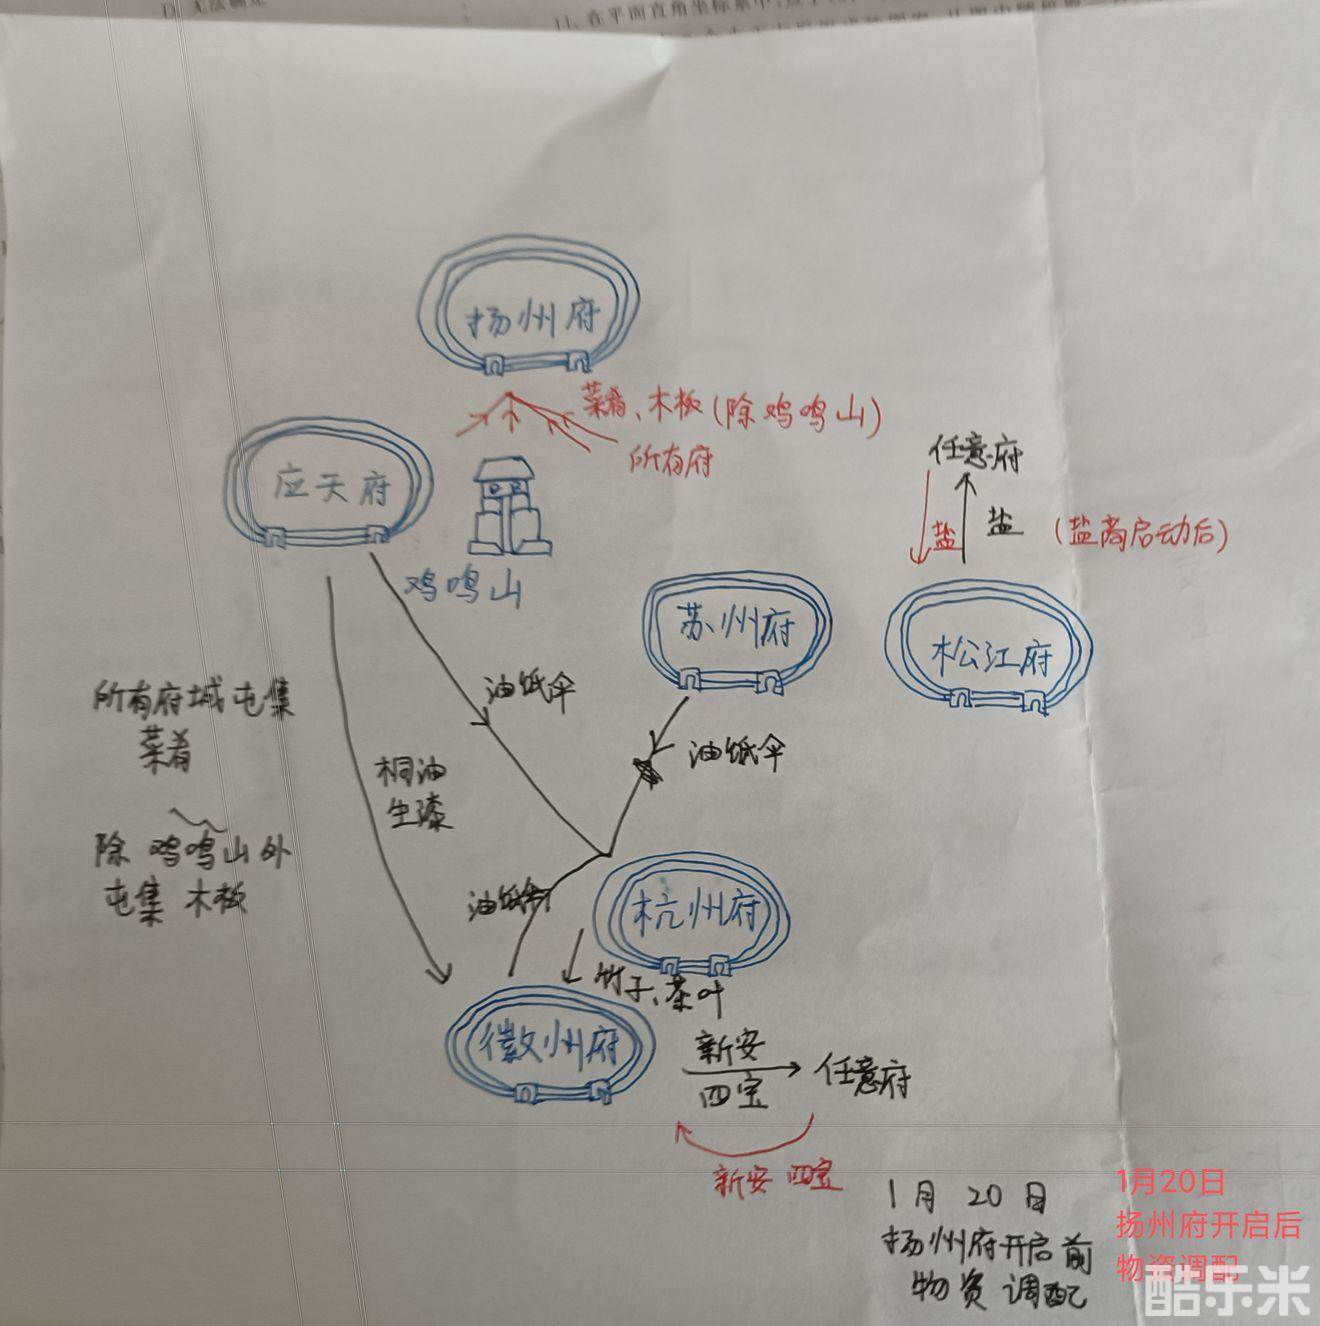 11、在平面直角坐标系中,
扬州府
菜肴、木板(除鸡鸣山)
所有府
任意府
应天府
盐
盐
(盐商启动后)
鸡鸣山
苏州府
松江府
油纸伞
所有府城屯集
菜肴
油纸伞
桐油
生漆
除鸡鸣山外
屯集木板
油纸伞
杭州府
竹子、茶叶
徽州府
新安
四宝
任意府
新安四宝
1月20日
扬州府开启前
物资调配
1月20日
扬州府开启后
物资调配
酷乐米